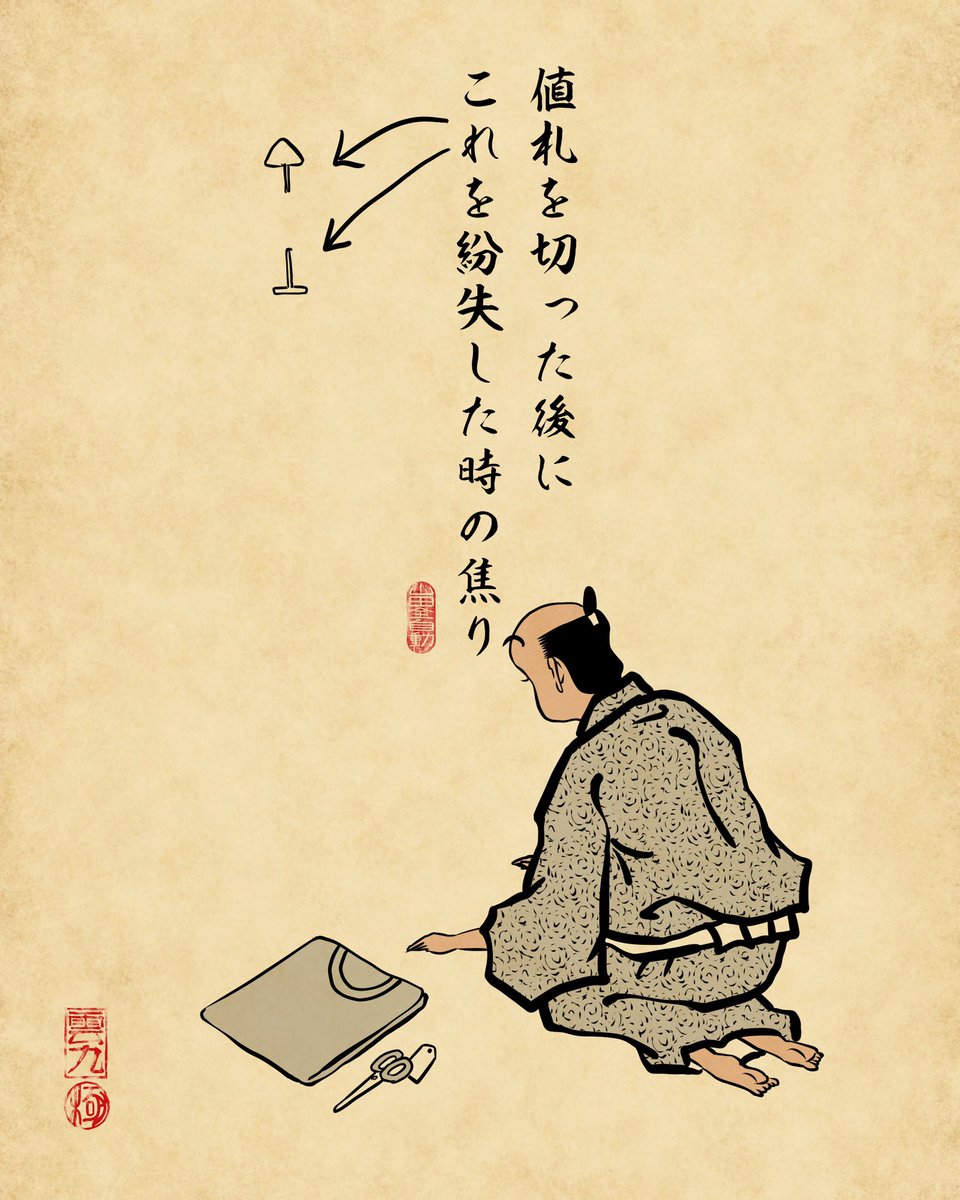 値札を切った後に
これを紛失した時の焦り